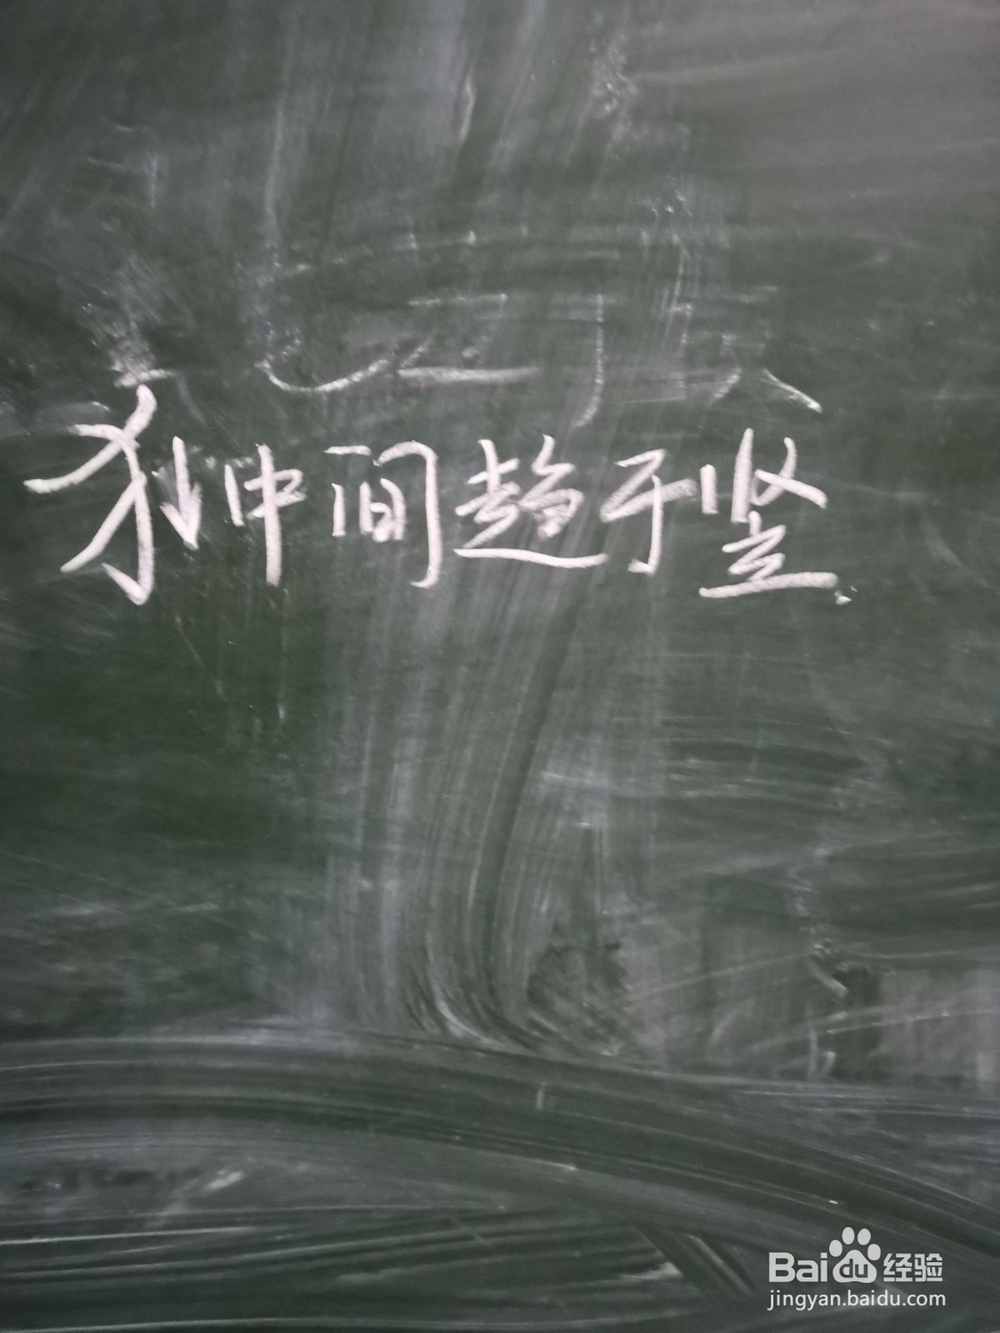 犭↓中间趋于竖.
Baidu经验
jingyan.baidu.com